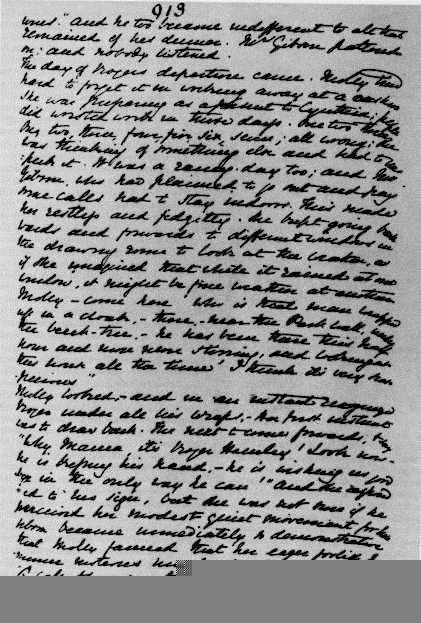 913
ones." And he too became indifferent to all that
remained of his dinner. Mrs Gibson pattered
on: and nobody listened.
The day of Roger's departure came. Molly tried
hard to forget it in working away at a cushion
she was preparing as a present to Cynthia; people
did worsted-work in those days. One, two, three
One, two, three, four, five, six, seven; all wrong; she
was thinking of something else and had to un-
pick it. It was a rainy day too; and Mrs
Gibson, who had planned to go out and pay
some calls had to stay indoors. This made
her restless and fidgetty. She kept going back
wards and forwards to different windows in
the drawing room to look at the weather, as
if she imagined that while it rained at one
window, it might be fine weather at another
Molly - come here! who is that man wrapped
up in a cloak, - there, - near the Park wall, under
the beech-tree, - he has been there this half-
hour and more never stirring, and looking at
this house all the time! I think it's very sus-
picious"
Molly looked, - and in an instant recognized
Roger under all his wraps. Her first instinct
was to draw back. The next to come forwards,
"Why Mama, it's Roger Hamley! Look now -
he is kissing his hand, - he is wishing us good
bye in the only way he can!" And she respond
-ed to his sign, but she was not sure if he
perceived her modest quiet movement, for Mrs
Gibson became immediately so demonstrative
that Molly fancied that her eager foolish